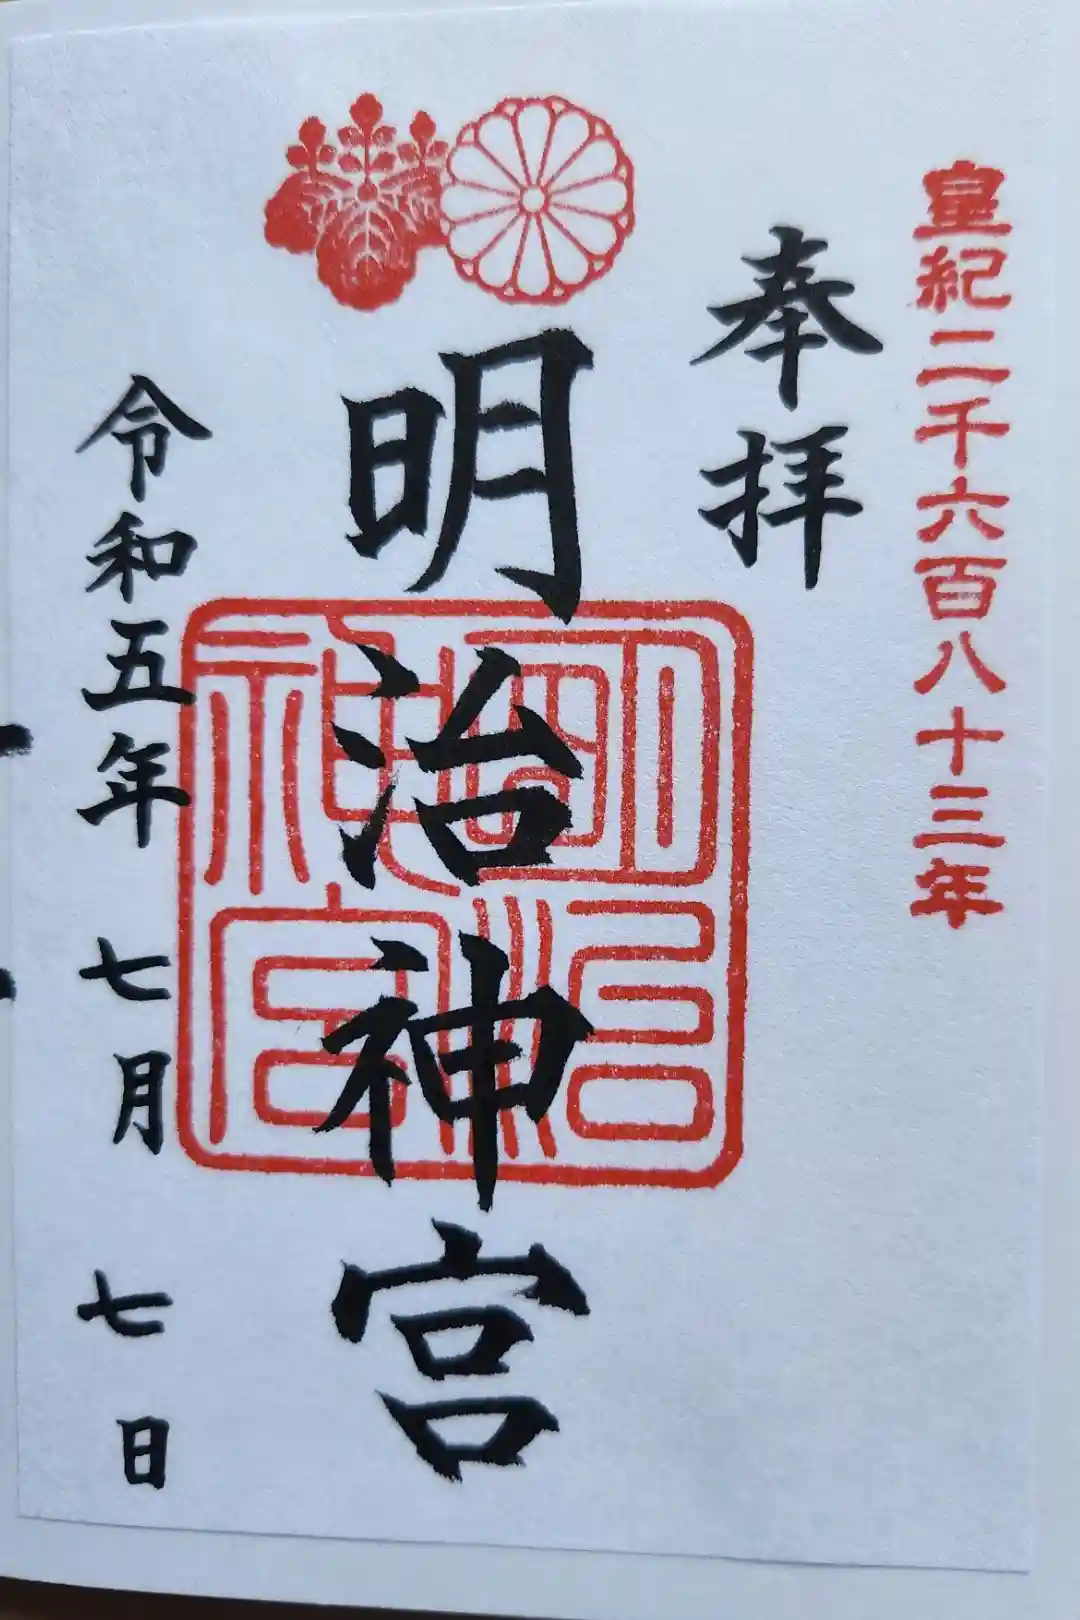 皇紀二千六百八十三年
奉拝
明治神宮
明治神宮
令和五年 七月 七日